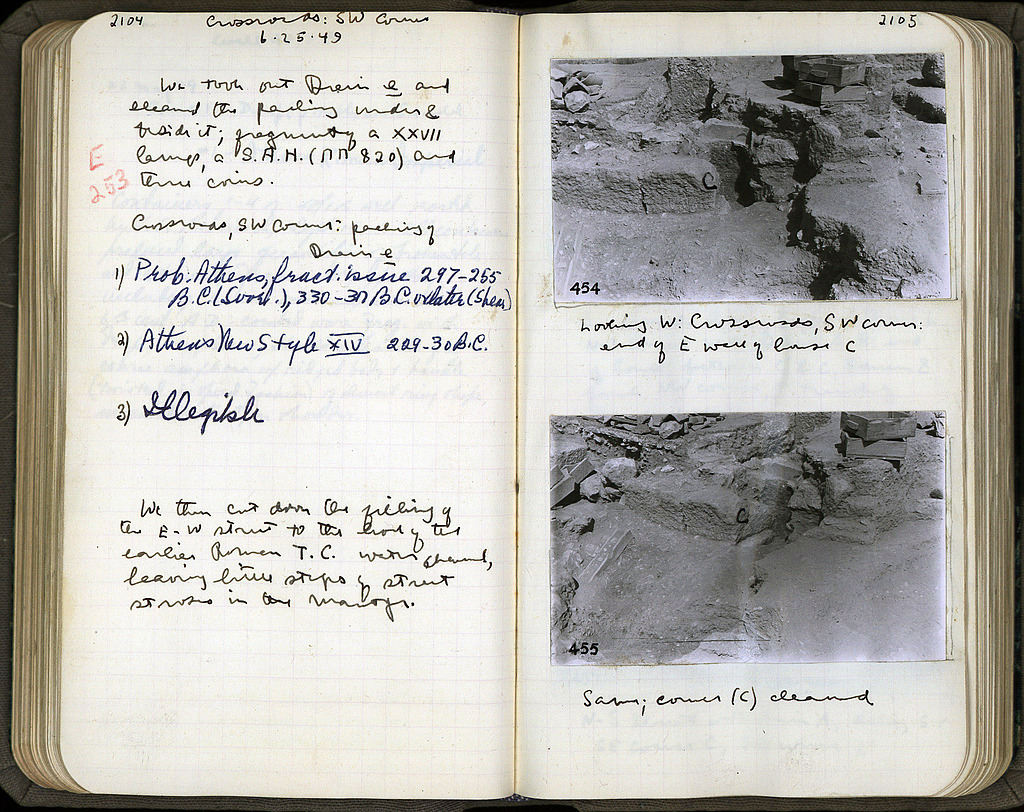 2104
Crossroads: SW Corner
6-25-49
We took out Drain e and
cleaned the packing under &
beside it; fragments of a XXVII
lamp, a S.A.H. (ΠΠ 820) and
three coins.
E
253
Crossroads, SW Corner: packing of
Drain e
1) Prob. Athens, fract. issue 297-255
B.C. (Svor.), 330-30 B.C. or later (Shear)
2) Athens New Style XIV 229-30 B.C.
3) Illegible
We then cut down the filling of
the E-W street to the body of the
earlier Roman T.C. water channel,
leaving little strips of street
stroses in the
2105
C
454
Looking W: Crossroads, SW corner:
end of E wall of house C
C
455
Same; corner (C) cleaned